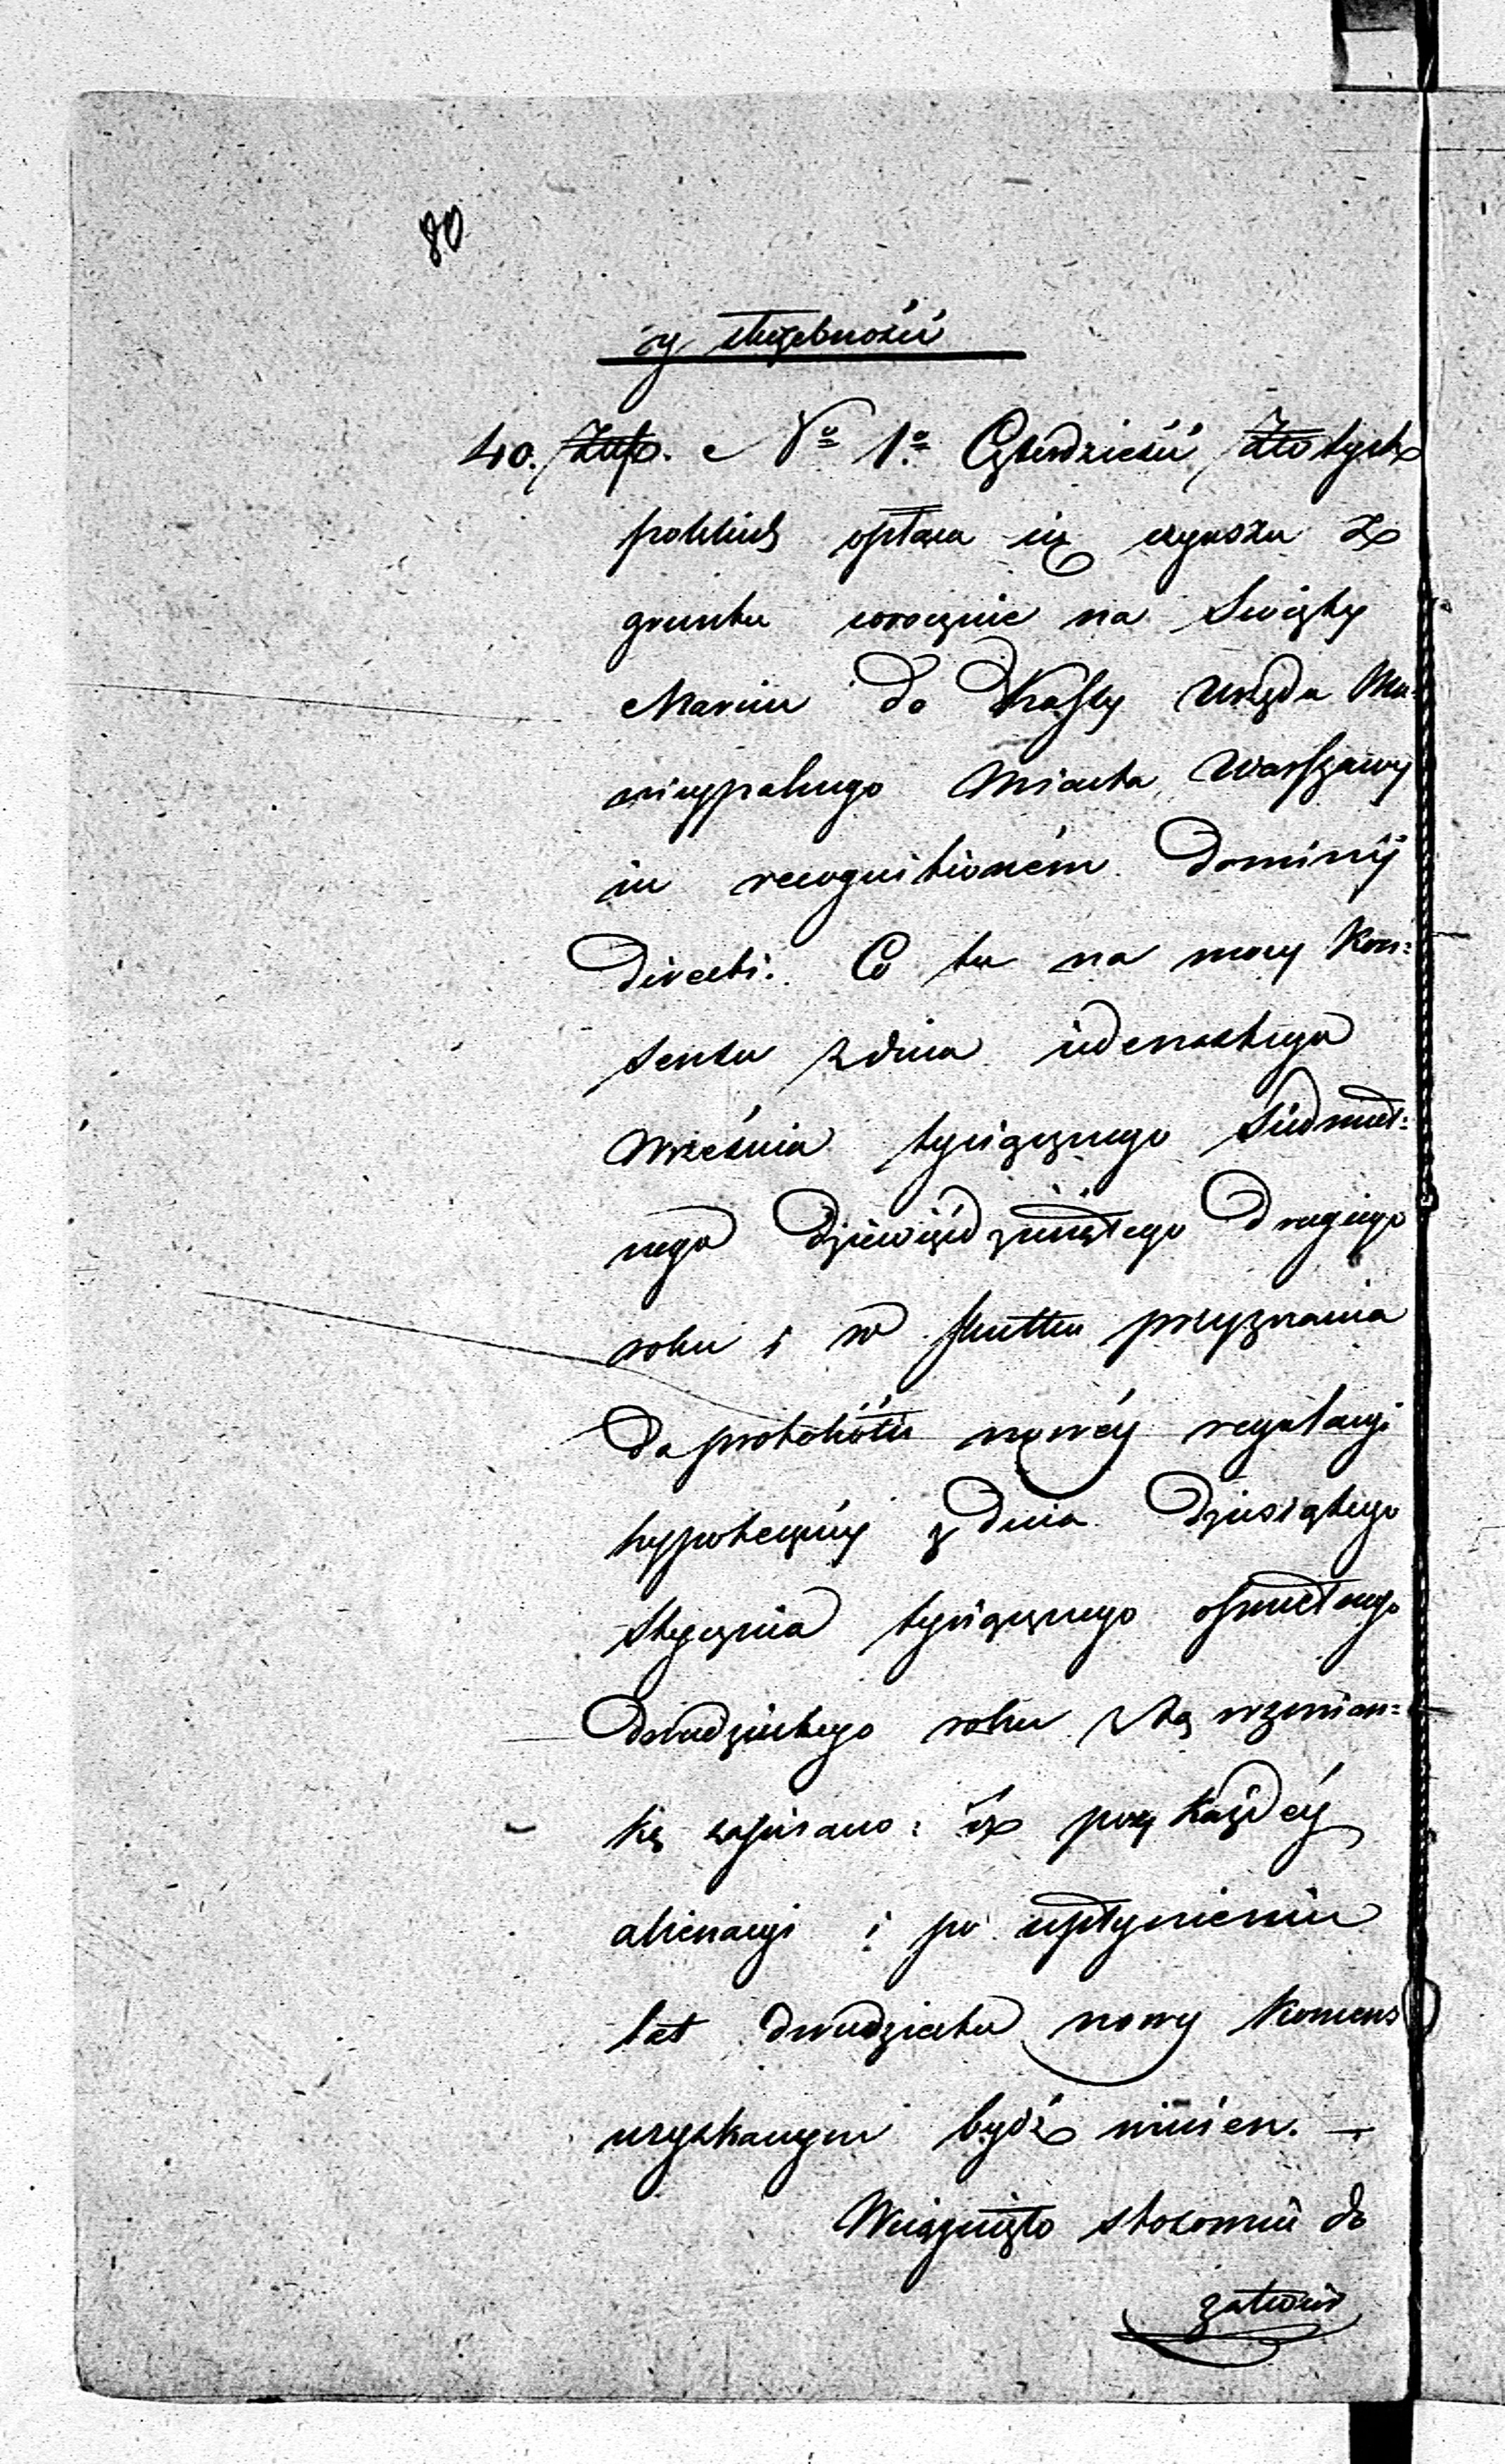 80
cy służebności
40. Złłp. No 1o Czterdzieści złotych
polskich opłaca się czynszu z
gruntu corocznie na Święty
Marcin do Kassy Urzędu Mu-
nicypalnego Miasta Warszawy
in recognitionem Dominij
Directi. Co tu na mocy Kon=
sensu z dnia iedenastego
Września tysiącznego siedmset=
nego dziewięćdziesiątego drugiego
roku i w skutku przyznania
do protokółu nowéy regulacyi
hypotecznéy z dnia dziesiątego
stycznia tysiącznego ośmsetnego
dwudziestego roku z tą wzmian=
ką zapisano: iż przy każdéy
alienacyi i po upłynieniu
lat dwudziestu nowy konsens
uzyskanym bydź winien. —
Wciągnięto stosownie do
zatwier